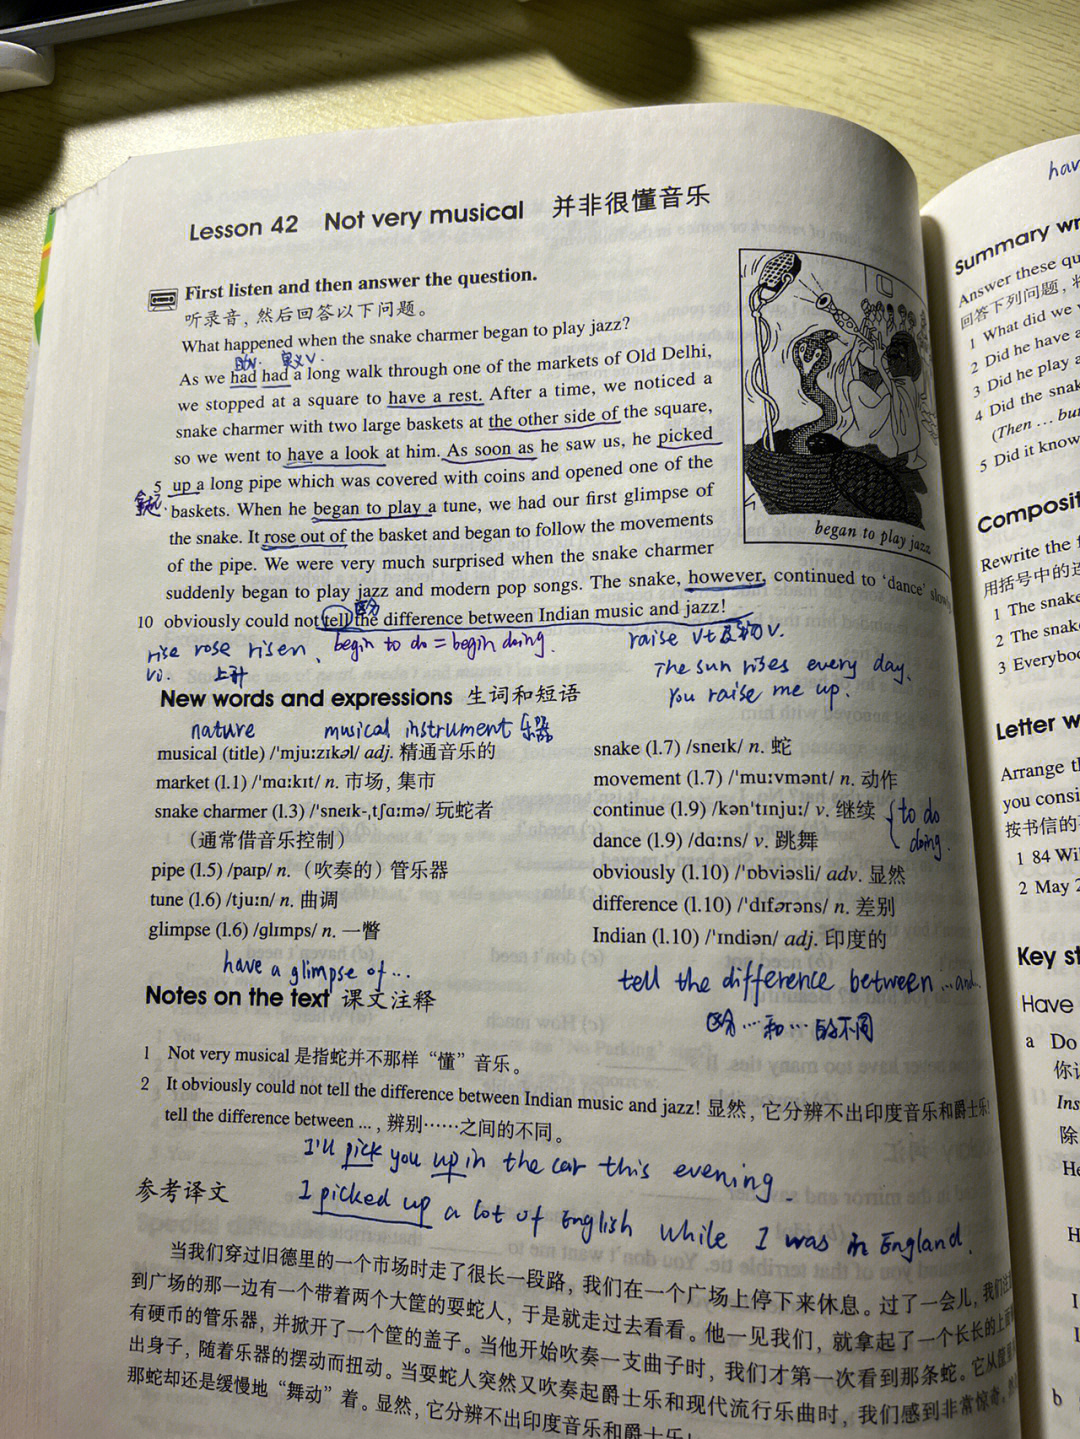 Lesson 42 Not very musical 并非很懂音乐
First listen and then answer the question.
听录音，然后回答以下问题。
What happened when the snake charmer began to play jazz?
助v. 实义v.
As we had had a long walk through one of the markets of Old Delhi,
we stopped at a square to have a rest. After a time, we noticed a
snake charmer with two large baskets at the other side of the square,
so we went to have a look at him. As soon as he saw us, he picked
5 up a long pipe which was covered with coins and opened one of the
拿起.
baskets. When he began to play a tune, we had our first glimpse of
the snake. It rose out of the basket and began to follow the movements
of the pipe. We were very much surprised when the snake charmer
suddenly began to play jazz and modern pop songs. The snake, however, continued to ‘dance’ slowly
区分
10 obviously could not tell the difference between Indian music and jazz!
began to play jazz
rise rose risen
vi. 上升
begin to do = begin doing.
raise vt及物v.
The sun rises every day.
You raise me up.
New words and expressions 生词和短语
nature musical instrument 乐器
musical (title) /ˈmjuːzɪkəl/ adj. 精通音乐的
market (l.1) /ˈmɑːkɪt/ n. 市场, 集市
snake charmer (l.3) /ˈsneɪk-ˌtʃɑːmə/ 玩蛇者
（通常借音乐控制）
pipe (l.5) /paɪp/ n.（吹奏的）管乐器
tune (l.6) /tjuːn/ n. 曲调
glimpse (l.6) /glɪmps/ n. 一瞥
have a glimpse of...
snake (l.7) /sneɪk/ n. 蛇
movement (l.7) /ˈmuːvmənt/ n. 动作
continue (l.9) /kənˈtɪnjuː/ v. 继续 { to do
doing.
dance (l.9) /dɑːns/ v. 跳舞
obviously (l.10) /ˈɒbviəsli/ adv. 显然
difference (l.10) /ˈdɪfərəns/ n. 差别
Indian (l.10) /ˈɪndiən/ adj. 印度的
tell the difference between ...and.
区分…和…的不同
Notes on the text 课文注释
1 Not very musical 是指蛇并不那样“懂”音乐。
2 It obviously could not tell the difference between Indian music and jazz! 显然，它分辨不出印度音乐和爵士乐!
tell the difference between ... , 辨别……之间的不同。
I'll pick you up in the car this evening.
I picked up a lot of English while I was in England.
参考译文
当我们穿过旧德里的一个市场时走了很长一段路，我们在一个广场上停下来休息。过了一会儿，我们注
到广场的那一边有一个带着两个大筐的耍蛇人，于是就走过去看看。他一见我们，就拿起了一个长长的上面
有硬币的管乐器，并掀开了一个筐的盖子。当他开始吹奏一支曲子时，我们才第一次看到那条蛇。它从筐里
出身子，随着乐器的摆动而扭动。当耍蛇人突然又吹奏起爵士乐和现代流行乐曲时，我们感到非常惊奇。
那蛇却还是缓慢地“舞动”着。显然，它分辨不出印度音乐和爵士乐!
hav
Summary wr
Answer these qu
回答下列问题，将
1 What did we
2 Did he have a
3 Did he play a
4 Did the snak
(Then ... bu
5 Did it know
Composit
Rewrite the f
用括号中的连
1 The snake
2 The snak
3 Everybo
Letter w
Arrange th
you consi
按书信的
1 84 Wil
2 May 2
Key st
Have
a Do
你
Ins
除
He
H
I
b